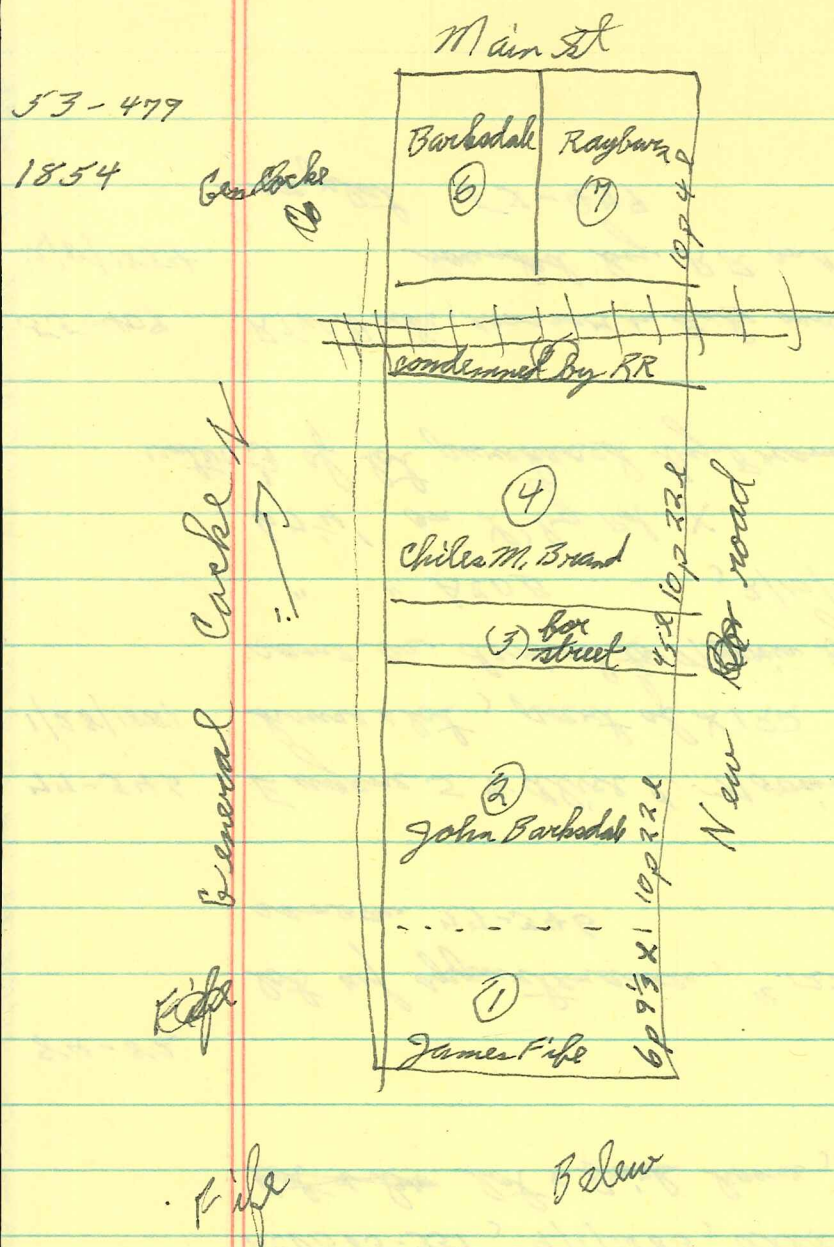 Main St
53-479
1854
Geo Cocke
Co
Barksdale
6
Rayburn
7
10p 4l
condemned by RR
N
General Cocke
4
Chiles M. Brand
10p 22l
(3) for
street
45l
New road
2
John Barksdale
10p 22l
1
James Fife
6p 9 1/3 l
Fife
Below